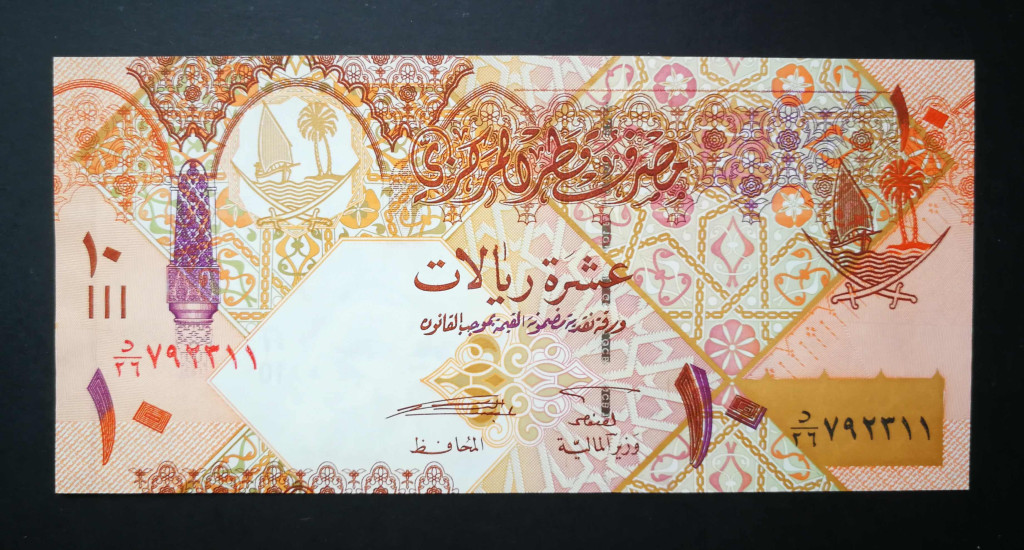 مصرف قطر المركزي
١٠
١٠
عشرة ريالات
ورقة نقدية مضمونة القيمة بموجب القانون
د/٢٦ ٧٩٢٣١١
١٠
١٠
د/٢٦ ٧٩٢٣١١
المحافظ
وزير المالية